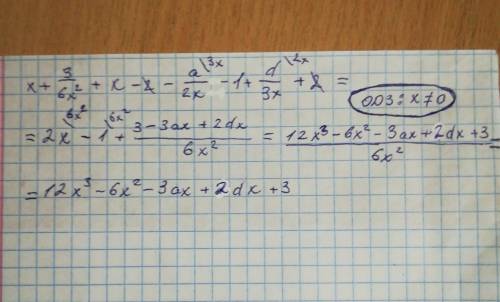 x + 3/6x² + x - 2 - a\3x/2x - 1 + d\2x/3x + 2 =
ОДЗ: x≠0
= 2x\6x² - 1\6x² + 3 - 3ax + 2dx/6x² = 12x³ - 6x² - 3ax + 2dx + 3/6x² =
= 12x³ - 6x² - 3ax + 2dx + 3